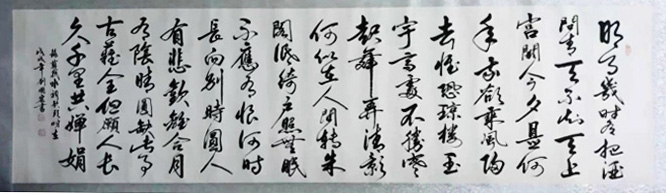 明月幾時有把酒
問青天不知天上
宮闕今夕是何
年我欲乘風歸
去惟恐瓊樓玉
宇高處不勝寒
起舞弄清影
何似在人間轉朱
閣低綺戶照無眠
不應有恨何時
長向別時圓人
有悲歡離合月
有陰晴圓缺此事
古難全但願人長
久千里共嬋娟
蘇軾水調歌頭
戊戌年劉書